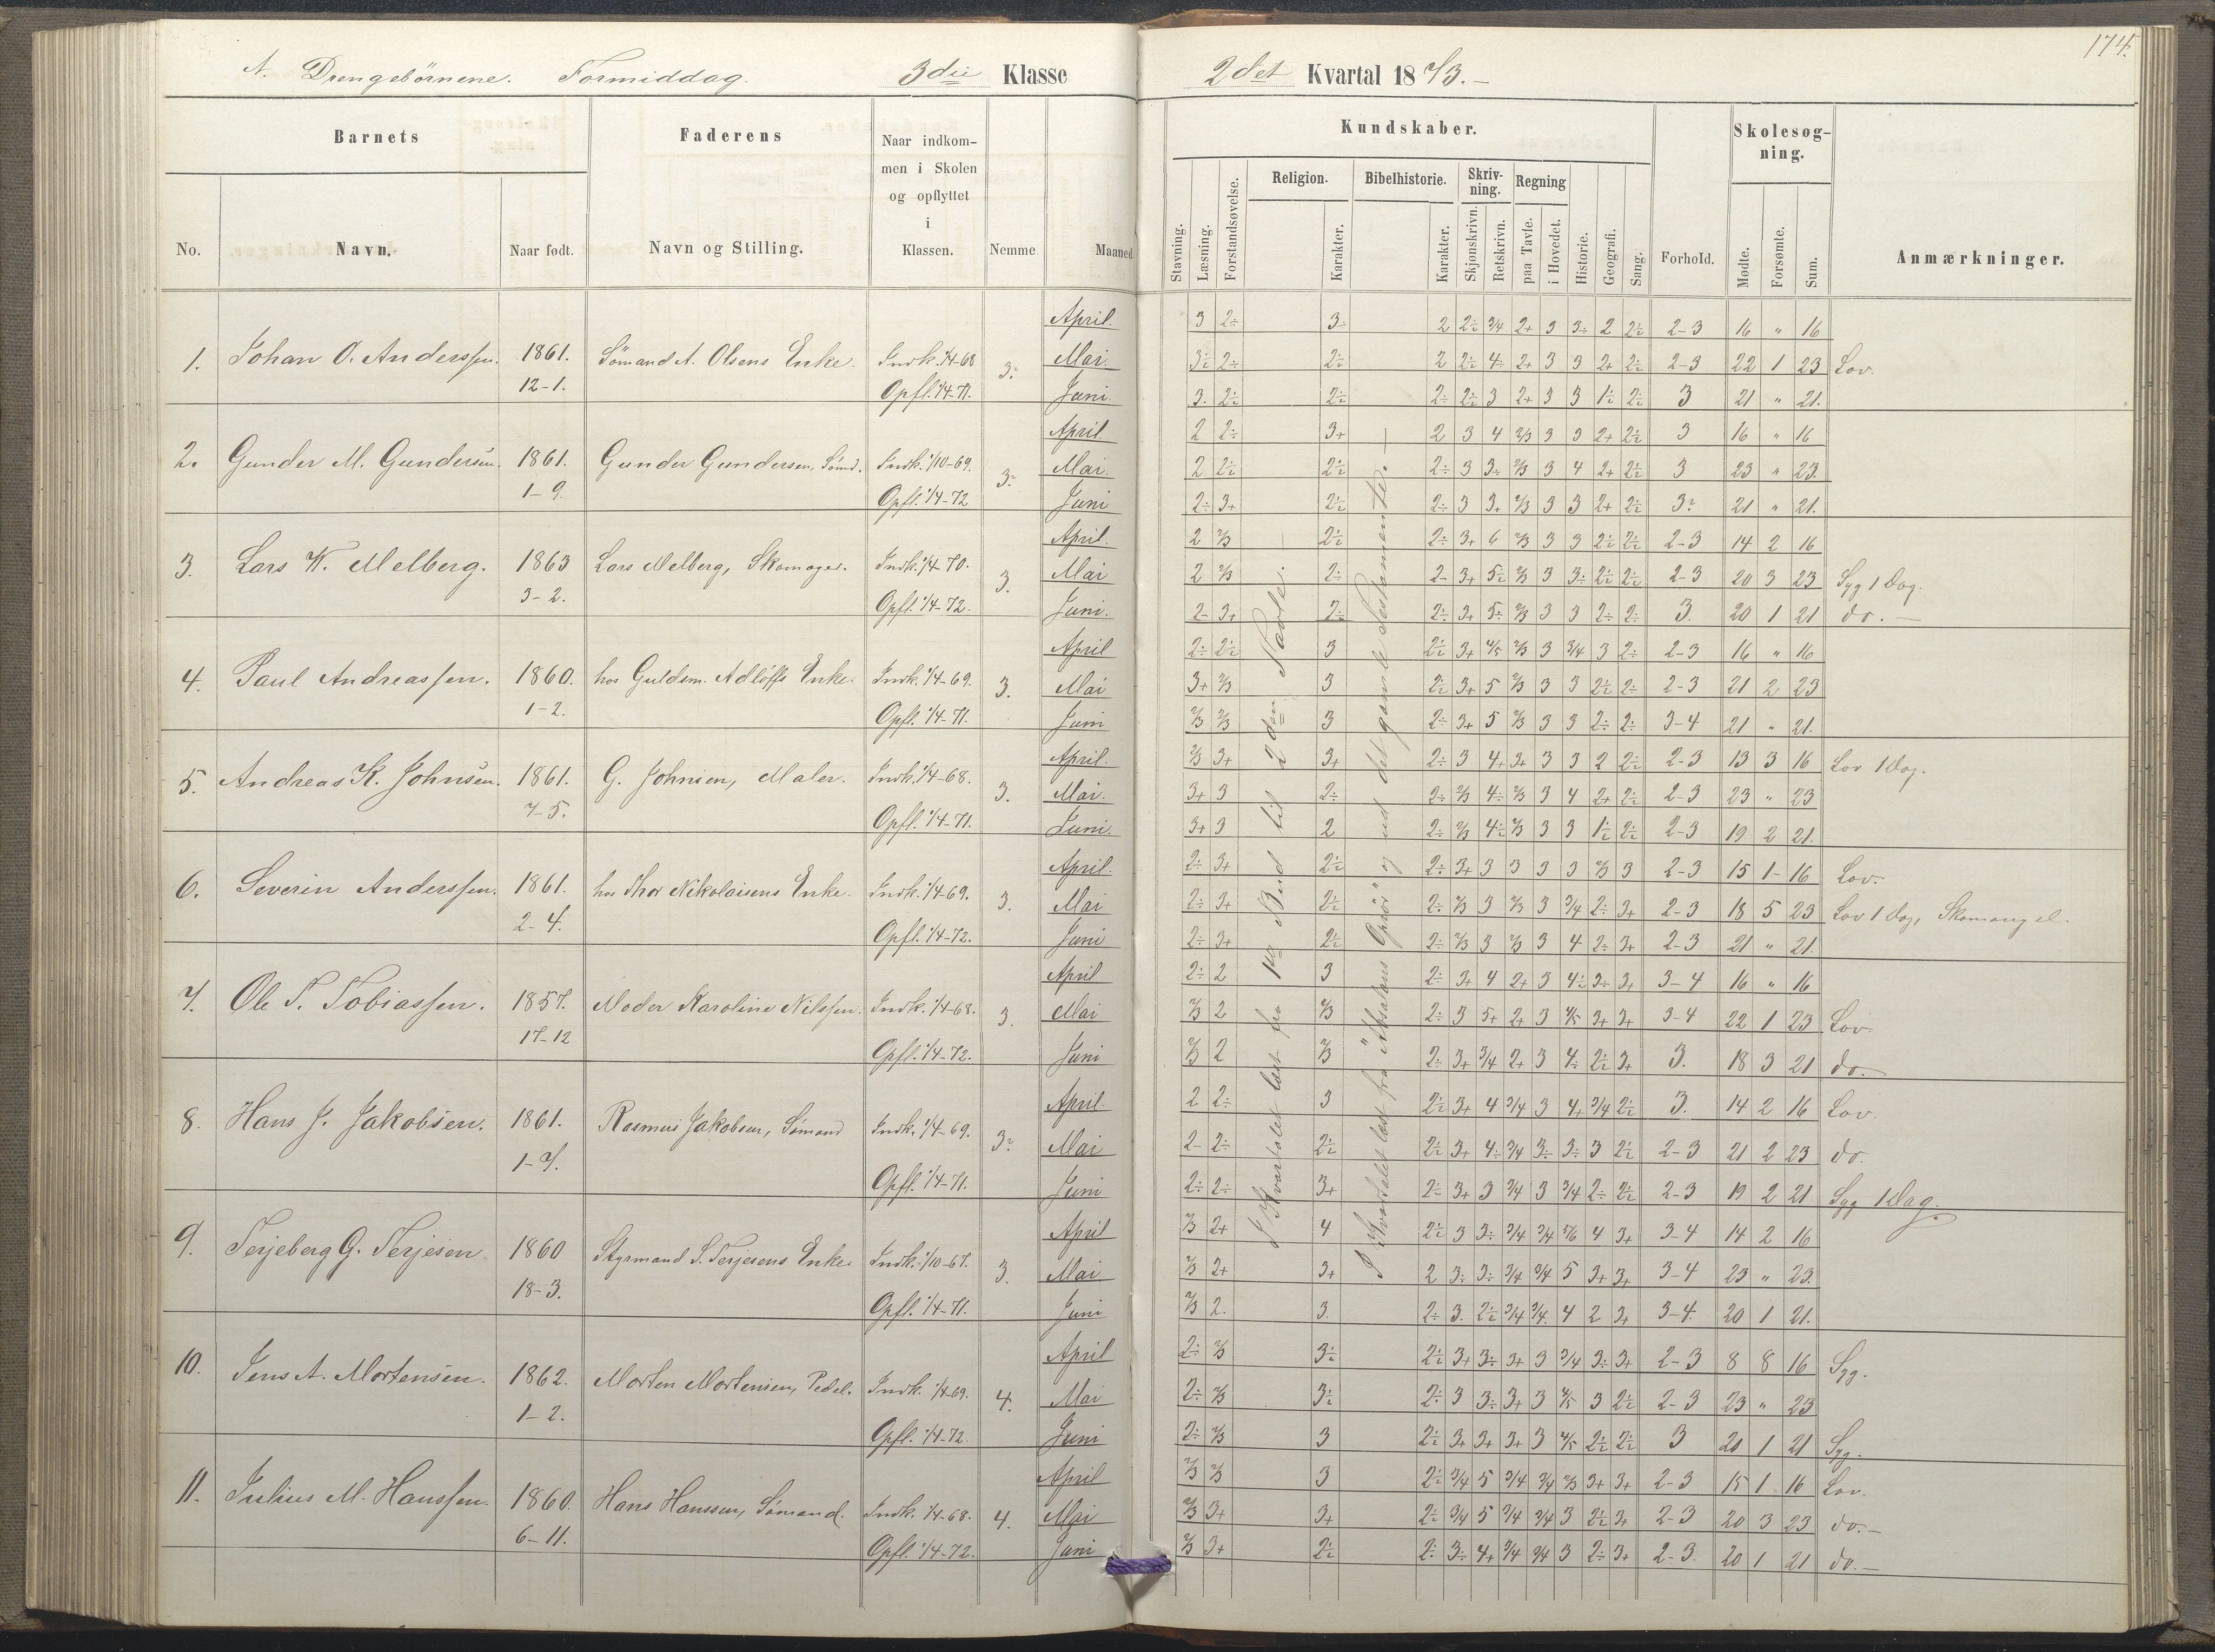 174.
A. Drengebörnene. Formiddag. 3die Klasse 2det Kvartal 1873.-
Barnets Faderens Naar indkommen i Skolen og opflyttet i Klassen. Nemme Maaned
No. Navn. Naar født. Navn og Stilling.
Kundskaber. Skolesøgning.
Religion. Bibelhistorie. Skrivning. Regning
Stavning. Læsning. Forstandsøvelse. Karakter. Karakter. Skjønskrivn. Retskrivn. paa Tavle. i Hovedet. Historie. Geografi. Sang. Forhold. Mødte. Forsømte. Sum. Anmærkninger.
I Kvartalet læst fra 1ste Bud til 2den Tavle.
I Kvartalet læst fra "Absalons Oprör" og ud det gamle Testamente.-
April. 3 2÷ 3÷ 2 2÷ 3/4 2+ 3 3÷ 2 2÷ 2-3 16 " 16
1. Johan O. Anderssen. 1861. Sömand A. Olsens Enke. Indk. 1/4-68 3. Mai. 3÷ 2÷ 2÷ 2 2÷ 4÷ 2+ 3 3 2+ 2÷ 2-3 22 1 23 Lov.
12-1. Opfl. 1/4-71. Juni. 3. 2÷ 2÷ 2÷ 2÷ 3 2+ 3 3 1÷ 2÷ 3 21 " 21.
April 2 2÷ 3+ 2 3 4 2/3 3 3 2+ 2÷ 3 16 " 16
2. Gunder M. Gundersen. 1861. Gunder Gundersen, Sömd. Indk. 1/10-69. 3. Mai. 2 2÷ 2÷ 2÷ 3 3÷ 2/3 3 4 2+ 2÷ 3 23 " 23.
1-9. Opfl. 1/4-72 Juni 2÷ 3+ 2÷ 2÷ 3 3+ 2/3 3 3 2+ 2÷ 3 21 " 21.
April. 2 2/3 2÷ 2÷ 3+ 6 2/3 3 3 2÷ 2÷ 2-3 14 2 16
3. Lars W. Melberg. 1863 Lars Melberg, Skomager. Indk. 1/4-70. 3. Mai 2 2/3 2÷ 2- 3+ 5÷ 2/3 3 3÷ 2÷ 2÷ 2-3 20 3 23 Syg 1 Dag.
3-2. Opfl. 1/4-72. Juni. 2- 3+ 2÷ 2÷ 3+ 5÷ 2/3 3 3 2÷ 2÷ 3. 20 1 21 do.-
April 2÷ 2÷ 3 2÷ 3+ 4/5 2/3 3 3/4 3 2÷ 2-3 16 " 16
4. Paul Andreassen. 1860. hos Guldsm. Adlöffs Enke. Indk. 1/4-69. 3. Mai 3+ 2/3 3 2÷ 3+ 5 2/3 3 3 2÷ 2÷ 2-3 21 2 23
1-2. Opfl. 1/4-71. Juni 2/3 2/3 3 2÷ 3+ 5 2/3 3 3 2÷ 2÷ 3-4 21 " 21.
April. 2/3 3+ 3+ 2÷ 3 4+ 3+ 3 3 2 2÷ 2-3 13 3 16 Lov 1 Dag.
5. Andreas K. Johnsen. 1861. G. Johnsen, Maler. Indk. 1/4-68. 3. Mai. 3+ 3 2÷ 2÷ 2/3 4÷ 2/3 3 4 2+ 2÷ 2-3 23 " 23
7-5. Opfl. 1/4-71. Juni. 3+ 3 2 2÷ 2/3 4÷ 2/3 3 3 1÷ 2÷ 2-3 19 2 21.
April. 2÷ 3+ 2÷ 2÷ 3+ 3 3 3 3 2/3 3 2-3 15 1- 16 Lov.
6. Severin Anderssen. 1861. hos Thor Nikolaisens Enke. Indk. 1/4-69. 3. Mai 2÷ 3+ 2÷ 2÷ 2/3 3 2/3 3 3/4 2÷ 3+ 2-3 18 5 23 Lov 1 Dag, Skomangel.
2-4. Opfl. 1/4-72. Juni 2÷ 3+ 2÷ 2÷ 2/3 3 2/3 3 4 2÷ 3+ 2-3 21 " 21.
April 2÷ 2 3 2÷ 3+ 4 2+ 3 4÷ 3÷ 3+ 3-4 16 " 16
7. Ole T. Tobiassen. 1857. Moder Karoline Nilssen. Indk. 1/4-68. 3. Mai 2/3 2 2/3 2÷ 3 5+ 2+ 3 4/5 3+ 3+ 3-4 22 1 23 Lov.
17-12 Opfl. 1/4-72. Juni 2/3 2 2/3 2÷ 3+ 3/4 2+ 3 4÷ 2÷ 3+ 3. 18 3 21 do.
April 2 2÷ 3 2÷ 3+ 4 3/4 3 4+ 3/4 2÷ 3. 14 2 16 Lov.
8. Hans J. Jakobsen. 1861. Rasmus Jakobsen, Sömand Indk. 1/4-69. 3. Mai 2- 2÷ 2÷ 2÷ 3+ 4÷ 3/4 3÷ 3÷ 3 2÷ 2-3 21 2 23 do.
1-7. Opfl. 1/4-71. Juni 2÷ 2÷ 3+ 2÷ 3+ 3 3/4 3 3/4 2÷ 2÷ 2-3 19 2 21 Syg 1 Dag.
April 2/3 2+ 4 2÷ 3 3÷ 3/4 3/4 5/6 4 3+ 3-4 14 2 16
9. Terjeberg G. Terjesen 1860 Styrmand S. Terjesens Enke. Indk. 1/10-67. 3. Mai 2/3 2+ 3+ 2 3÷ 3÷ 3/4 3/4 5 3+ 3+ 3-4 23 " 23.
18-3. Opfl. 1/4-71. Juni 2/3 2. 3. 2÷ 3. 2÷ 3/4 3/4 4 2 3+ 3-4. 20 1 21.
April 2÷ 2/3 3÷ 2÷ 3+ 3÷ 3+ 3 3/4 3÷ 3+ 2-3 8 8 16 Syg.
10. Jens A. Mortensen. 1862. Morten Mortensen, Pedel. Indk. 1/4-69. 4. Mai 2÷ 2/3 3÷ 2÷ 3 3÷ 3+ 3 4/5 3 2÷ 2-3 23 " 23
1-2. Opfl. 1/4-72. Juni 2÷ 2/3 3 2÷ 3+ 3+ 3+ 3 4/5 2÷ 2÷ 3 20 1 21 Syg.
April 2/3 2/3 3 2÷ 3/4 5 3/4 3/4 2/3 3+ 3+ 2-3 15 1 16 Lov.
11. Julius M. Hanssen. 1860. Hans Hanssen, Sömand. Indk. 1/4-68. 4. Mai 2/3 3+ 3+ 2÷ 3/4 5 3/4 3/4 3 2÷ 3+ 2-3 20 3 23 do.-
6-11. Opfl. 1/4-72. Juni 2/3 3+ 2÷ 2÷ 3÷ 4+ 3/4 3/4 3 2÷ 3+ 2-3. 20 1 21 do.-